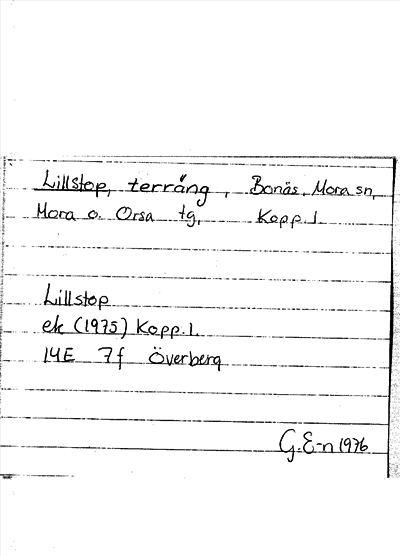 Lillstop, terräng, Bonäs, Mora sn,
Mora o. Orsa tg, Kopp. l.
Lillstop
ek (1975) Kopp. l.
14E 7f Överberg
G. E-n 1976